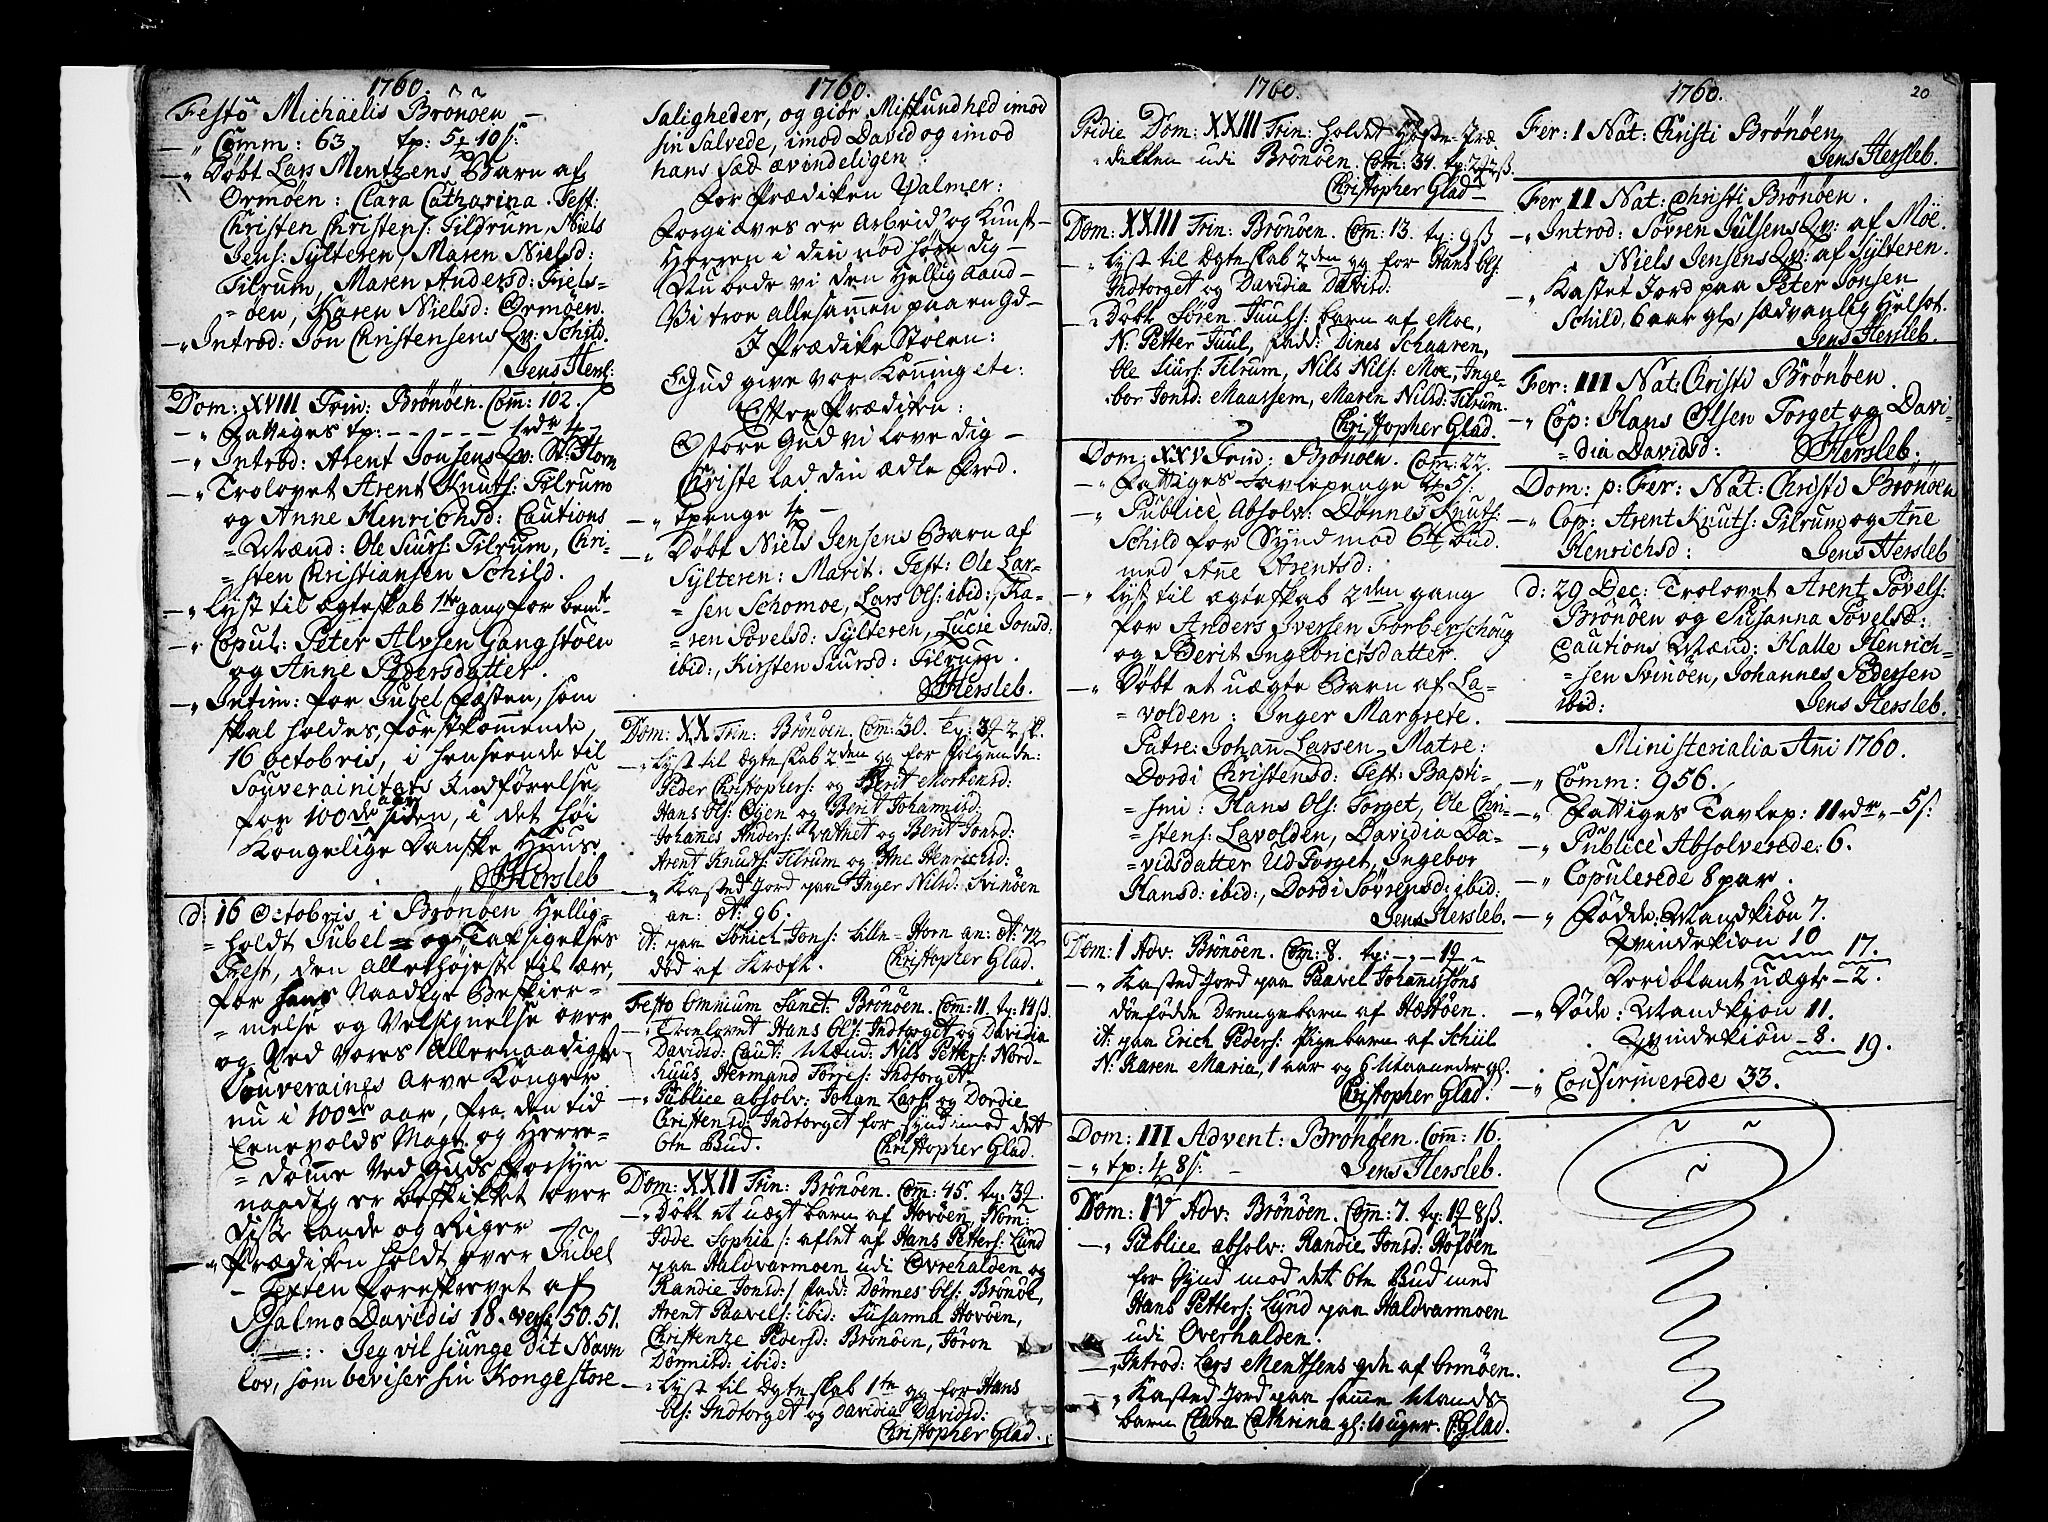 1760.
Festo Michaëlis Brönöen –
–„ Comm: 63. tp: 5 10 s:
–„ Döbt Lars Mentzens Barn af
Ormöen: Clara Catharina. Test:
Christen Christens: Tilrum, Niels
Jens: Sylteren, Maren Nielsd:
Tilrum, Maren Andersd: Fiels-
=öen, Karen Nielsd: Ormöen.
–„ Introd: Jon Christensens Qv: Schild.
Jens Hersl:
Dom: XVIII Trin: Brönöen. Com: 102.
–„ Fattiges tp: – – – – – 1 rdr 4
–„ Introd: Arent Jonsens Qv: St: Horn
–„ Trolovet Arent Knuts: Tilrum
og Anne Henrichsd: Cautions
=Mænd: Ole Siurs: Tilrum, Chri-
=sten Christiansen Schild.
–„ Lyst til ægteskab 1te gang for bemte
–„ Copul: Peter Alvsen Gangstöen
og Anne Pedersdatter.
–„ Intim: for Jubel Fæsten, som
skal holdes, förstkommende
16 octobris, i henseende til
Souverainitets Indförelse,
for 100de aar siden, i det høi
Kongelige Danske Huus.
JHersleb
d: 16 Octobris, i Brönöen Hellig-
=holdt Jubel= og Taksigelses
Fest, den Allerhøjeste til ære,
for hans Naadige Beskier-
=melse og Velsignelse over
og Ved Vores Allernaadigste
Souveraines Arve Konger
nu i 100de aar, fra den tid
Eenevolds Magt og Herre-
=dømme Ved Guds Forsyn
naadig er beskikket over
disse Lande og Riger
–„ Prædiken holdt over Jubel
– Texten foreskrevet af
Psalmo Davidis 18. vers: 50. 51.
Jeg vil siunge dit Navn
lov, som beviser sin Konge store
1760.
Saligheder, og giör Miskundhed imod
sin Salvede, imod David og imod
hans Sæd ævindeligen.
For Prædiken Psalmer:
Forgiæves er Arbeid og Kunst –
Herren i din nød høre dig –
Nu bede vi den Hellig Aand –
Vi troe allesammen paa en Gd –
I Prædike Stolen:
Gud give vor Konning etc:
Efter Prædiken:
O store Gud vi love dig –
Christe lad din ædle Fred.
–„ tpenge 4 –
–„ Döbt Niels Jensens Barn af
Sylteren: Marit. Test: Ole Lar-
=sen Schomoe, Lars Ols: ibid:, Ka-
=ren Povelsd: Sylteren, Lucie Jonsd:
ibid:, Kirsten Siursd: Tilrum.
JHersleb.
Dom: XX Trin: Brönöen. Com: 30. tp: 3 2 s.
–„ Lyst til Ægteskab 2den gg for følgende:
Peder Christophers: og Berit Mortensd:
Hans Ols: Øyen og Berit Johannisd:
Johanes Anders: Vatnet og Berit Jonsd:
Arent Knuts: Tilrum og Ane Henrichsd:
–„ Kasted Jord paa Inger Nilsd: Svinöen
an: æt: 96.
it: paa Jonich Jons: Lille=Horn an: æt: 72
död af Kræft. Christopher Glad.
Festo Omnium Sanct: Brönöen. Com: 11. tp: 14 ß.
–„ Troelovet Hans Ols: Indtorget og Davidia
Davidsd: Caut: Mænd: Nils Petters: Nord-
huus, Hermand Torris: Indtorget
–„ Publice absolv: Johan Lars: og Dordie
Christensd: Indtorget for synd imod det
6te Bud. Christopher Glad.
Dom: XXII Trin: Brönöen. Com: 45. tp: 3.
–„ Döbt et uægt barn af Hovöen, Nom:
Idde Sophia /: aflet af Hans Petters: Lund
paa Haldvarmoen udi Overhalden og
Randie Jonsd: / Fadd: Dønnes Ols: Brönöe,
Arent Paavels: ibid: Susanna Hovöen,
Christenze Pedersd: Brönöen, Jöron
Dönnisd: ibid:
–„ Lyst til Ægteskab 1te gg for Hans
Ols: Indtorget og Davidia Davidsd:
Christopher Glad.
1760.
Pridie Dom: XXIII Trin: holdet Høste Præ
=diken udi Brönöen. Com: 34. tp: 2 2 ß.
Christopher Glad –
Dom: XXIII Trin: Brönöen. Com: 13. tp: 9 ß
–„ Lyst til Ægteskab 2den gg for Hans Ols:
Indtorget og Davidia Davidsd:
–„ Döbt Sören Juuls: barn af Moe,
N: Petter Juul, fadd: Dines Schaaren,
Ole Siurs: Tilrum, Nils Nils: Moe, Inge-
bor Jonsd: Maassem, Maren Nilsd: Tilrum.
Christopher Glad.
Dom: XXV Trin: Brönöen. Com: 22.
–„ Fattiges Tavlepenge 4 5 s.
–„ Publicè Absolv: Dønnes Knuts:
Schild for Synd mod 6te Bud.
med Ane Arentsd:
–„ Lyst til ægteskab 2den gang
for Anders Iversen Torberschoug
og Berit Ingebrictsdatter.
–„ Döbt et uægte Barn af La-
=volden: Inger Margrete.
Patre: Johan Larsen. Matre:
Dordi Christensd: Test: Bapti-
=smi: Hans Ols: Torget, Ole Chri-
=stens: Lavolden, Davidia Da-
=vidsdatter Ud Torget, Ingebor
Hansd: ibid:, Dordi Sövrensd: ibid:
Jens Hersleb.
Dom: I Adv. Brönöen. Com: 8. tp: – „ – 1 „
–„ Kasted Jord paa Paavel Johannisöns
dönfödde Drengebarn af Hæstöen.
it: paa Erich Peders: Pigebarn af Schiil
N: Karen Maria, 1 aar og 6 Maaneder gl.
Christopher Glad.
Dom: III Advent: Brönöen. Com: 16.
–„ tp: 4 8 s: – Jens Hersleb.
Dom: IV Adv: Brönöen. Com: 7. tp: 1 8 ß.
–„ Publice absolv: Randie Jonsd: Hoföen
for Synd mod det 6te Bud med
Hans Petters: Lund paa Haldvarmoen
udi Overhalden.
–„ Introd: Lars Mentsens qde af Ormöen.
–„ Kasted Jord paa samme Mands
barn Clara Cathrina gl: Uger. CGlad.
1760.
20
Fer: I Nat: Christi Brönöen
Jens Hersleb.
Fer II Nat: Christi Brönöen.
–„ Introd: Sövren Julsens Qv: af Moe.
Niels Jensens Qv: af Sylteren.
–„ Kastet Jord paa Peter Jonsen
Schild, 6 aar gl, sædvanlig Helsot.
Jens Hersleb.
Fer: III Nat: Christi Brönöen.
–„ Cop: Hans Olsen Torget og Davi-
=dia Davidsd: JHersleb.
Dom: p: Fer: Nat: Christi Brönöen
–„ Cop: Arent Knuts: Tilrum og Ane
Henrichsd: Jens Hersleb
d: 29 Dec: Trolovet Arent Povels:
Brönöen og Susanna Povelsd:
Cautions Mænd: Halle Henrich-
=sen Svinöen, Johannes Pedersen
ibid: Jens Hersleb.
Ministerialia Ani 1760.
–„ Comm: 956.
–„ Fattiges Tavlep: 11 rdr „ – 5 s:
–„ Publicè Absolverede: 6.
–„ Copulerede 8 par.
–„ Födde: Mandkiön 7.
Qvindekiön 10 17.
Deriblant uægte – 2.
–„ Døde: Mandkiön 11.
Qvindekiön – 8. 19.
–„ Confirmerede 33.